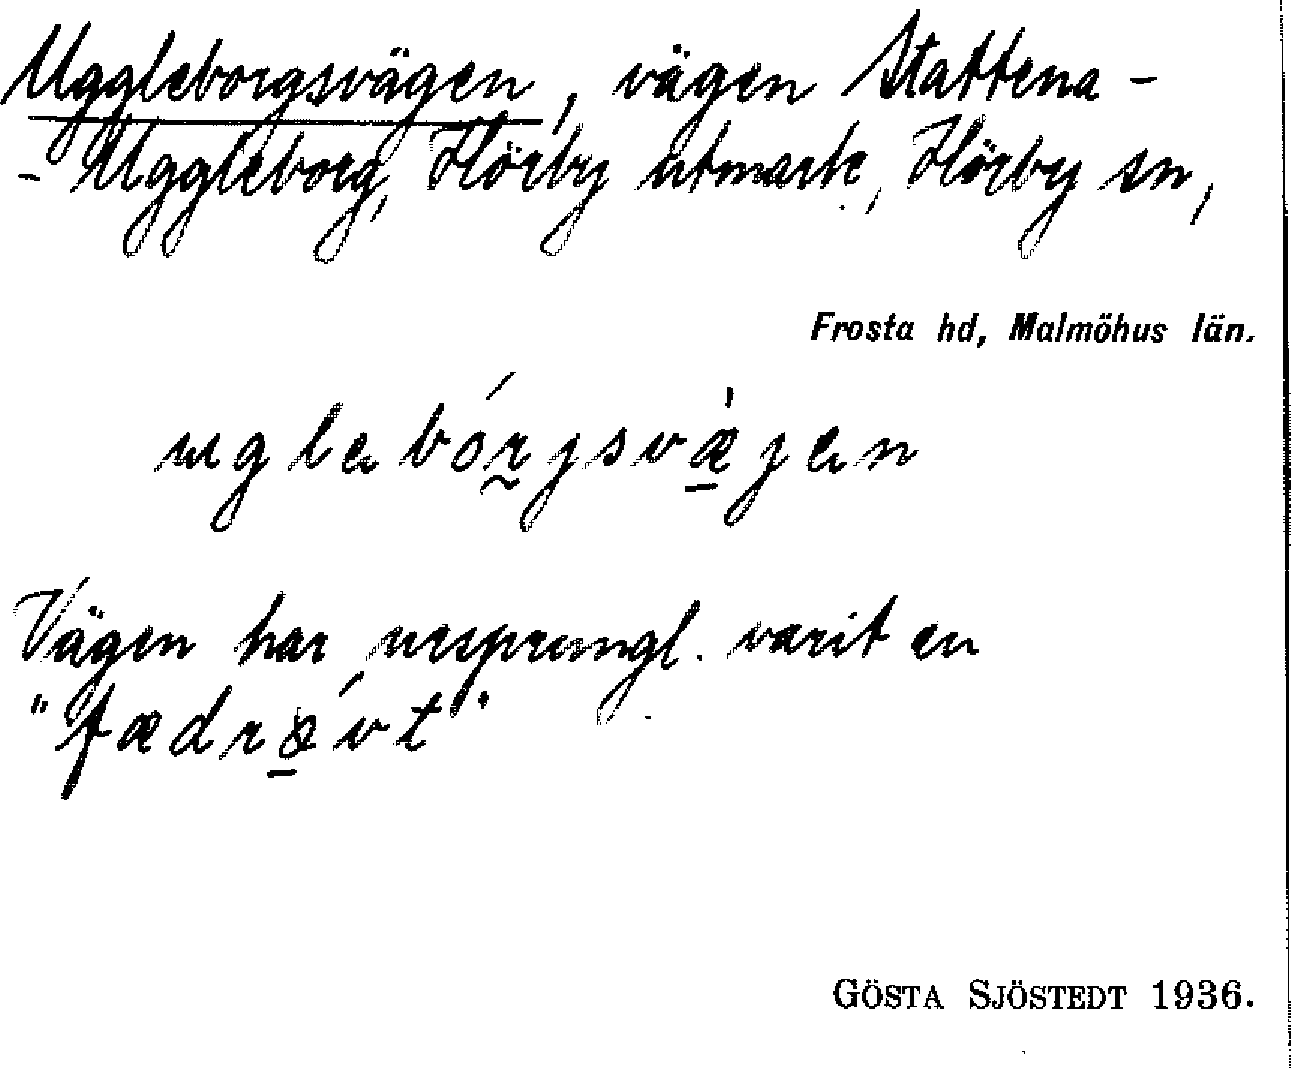 Uggleborgsvägen, vägen Stattena -
- Uggleborg, Hörby utmark, Hörby sn,
Frosta hd, Malmöhus län.
uglebórgsvæ̀gen
Vägen har ursprungl. varit en
"fædrǿvt"
GÖSTA SJÖSTEDT 1936.